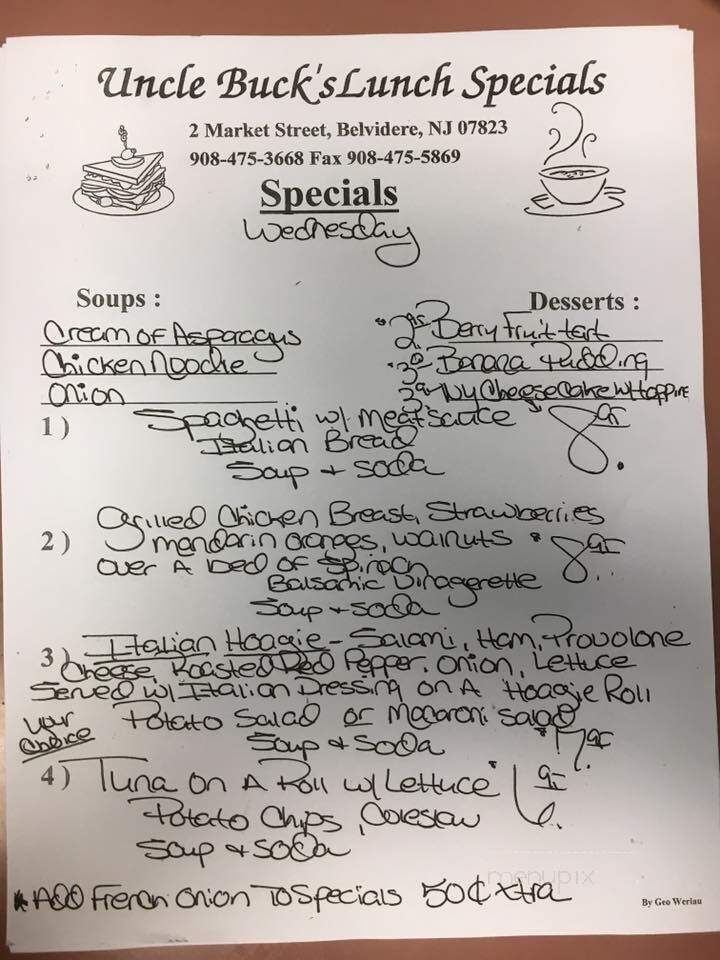 Uncle Buck's Lunch Specials
2 Market Street, Belvidere, NJ 07823
908-475-3668 Fax 908-475-5869
Specials
Wednesday
Soups :
Cream of Asparagus
Chicken Noodle
Onion
Desserts :
Berry Fruit tart
Banana Pudding
NY Cheese Cake w/ topping
1 ) Spaghetti w/ Meat sauce 8.95
Italian Bread
Soup + soda
2 ) Grilled Chicken Breast, Strawberries
mandarin oranges, walnuts 8.95
over A bed of Spinach
Balsamic Vinagerette
Soup + soda
3 ) Italian Hoagie - Salami, Ham, Provolone
Cheese, Roasted Red Pepper, onion, Lettuce
Served w/ Italian Dressing on A Hoagie Roll
your choice Potato Salad or Macaroni salad
Soup & Soda 7.95
4 ) Tuna on A Roll w/ Lettuce 6.95
Potato Chips, Coleslaw
Soup & SODA
* ADD French Onion To Specials 50¢ xtra
menupix
By Geo Werlau